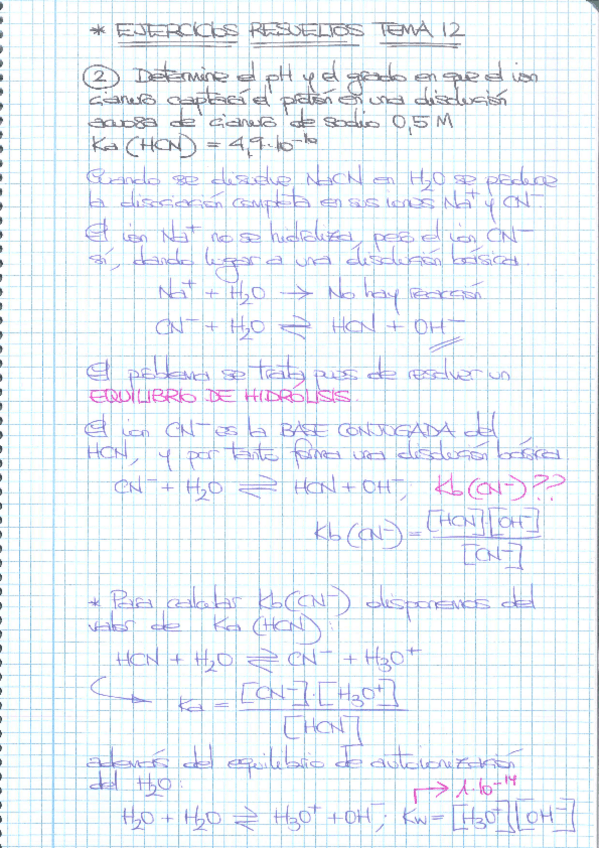 * EJERCICIOS RESUELTOS TEMA 12
② Determine el pH y el grado en que el ion
cianuro captará el protón en una disolución
acuosa de cianuro de sodio 0,5 M
Ka (HCN) = 4,9·10⁻¹⁰
Cuando se disuelve NaCN en H₂O se produce
la disociación completa en sus iones Na⁺ y CN⁻
El ion Na⁺ no se hidroliza, pero el ion CN⁻
sí, dando lugar a una disolución básica.
Na⁺ + H₂O → No hay reacción
CN⁻ + H₂O ⇌ HCN + OH⁻
El problema se trata pues de resolver un
EQUILIBRIO DE HIDRÓLISIS.
El ion CN⁻ es la BASE CONJUGADA del
HCN, y por tanto forma una disolución básica
CN⁻ + H₂O ⇌ HCN + OH⁻; Kb (CN⁻)??
Kb (CN⁻) = [HCN]·[OH⁻] / [CN⁻]
* Para calcular Kb(CN⁻) disponemos del
valor de Ka (HCN):
HCN + H₂O ⇌ CN⁻ + H₃O⁺
Ka = [CN⁻]·[H₃O⁺] / [HCN]
además del equilibrio de autoionización
del H₂O: → 1·10⁻¹⁴
H₂O + H₂O ⇌ H₃O⁺ + OH⁻; Kw = [H₃O⁺][OH⁻]